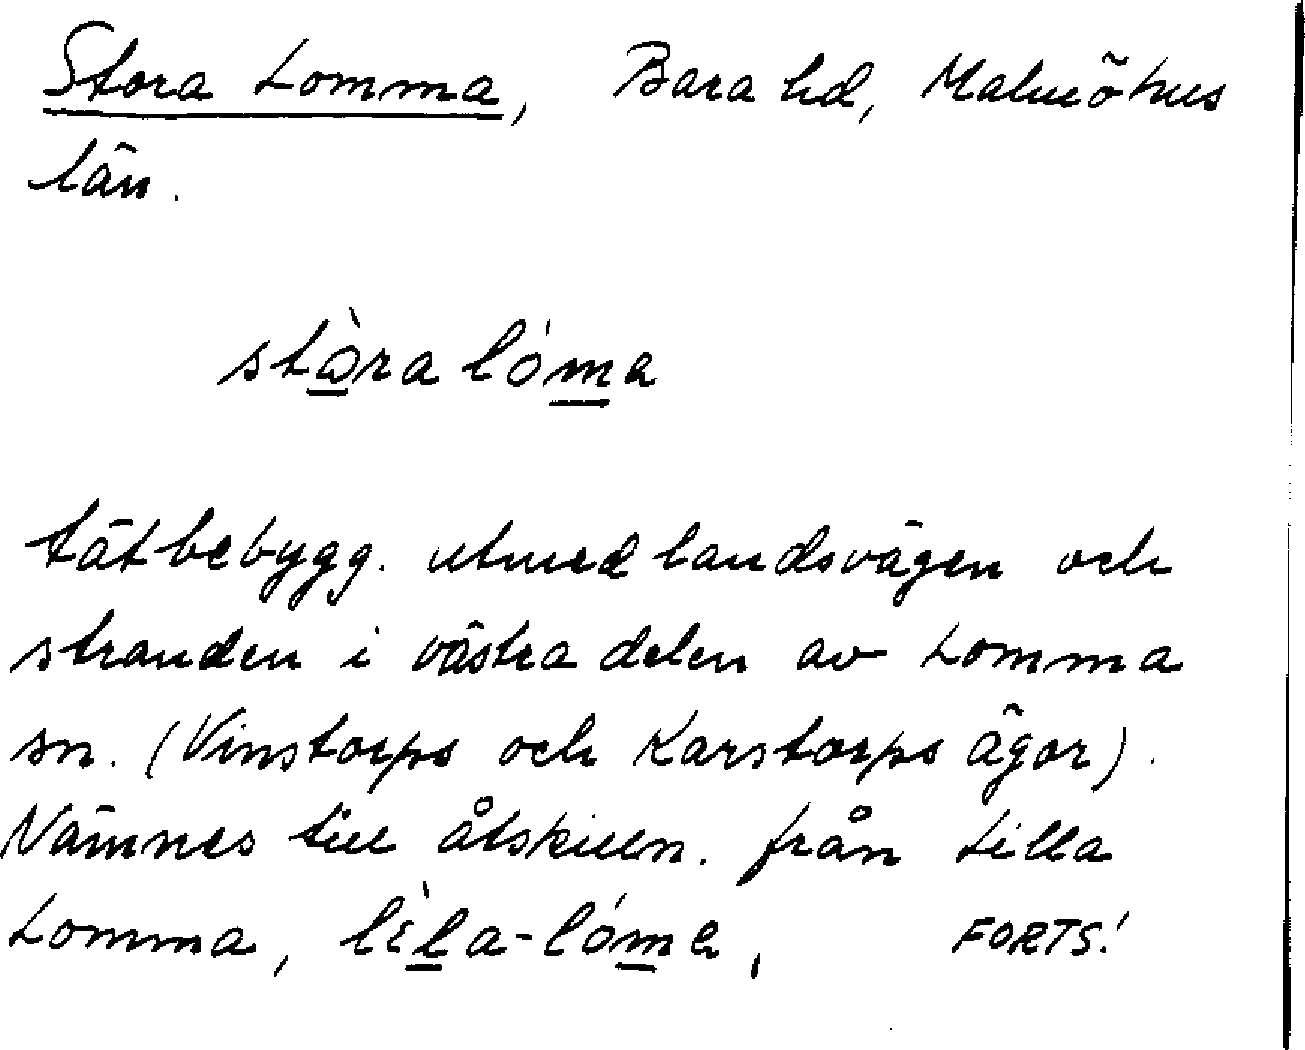 Stora Lomma, Bara hd, Malmöhus
län.
stɷ̀ra lóma
tätbebygg. utmed landsvägen och
stranden i västra delen av Lomma
sn. (Vinstorps och Karstorps ägor).
Nämnes till åtskilln. från Lilla
Lomma, lìla-lóma, FORTS!